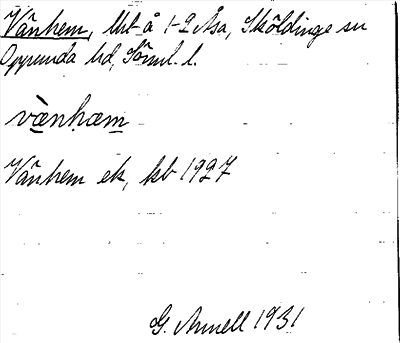 Vänhem, lht å 1-2 Åsa, Sköldinge sn
Oppunda hd, Söml. l.
vä̀nhæm
Vänhem ek, kb 1927
G. Annell 1931